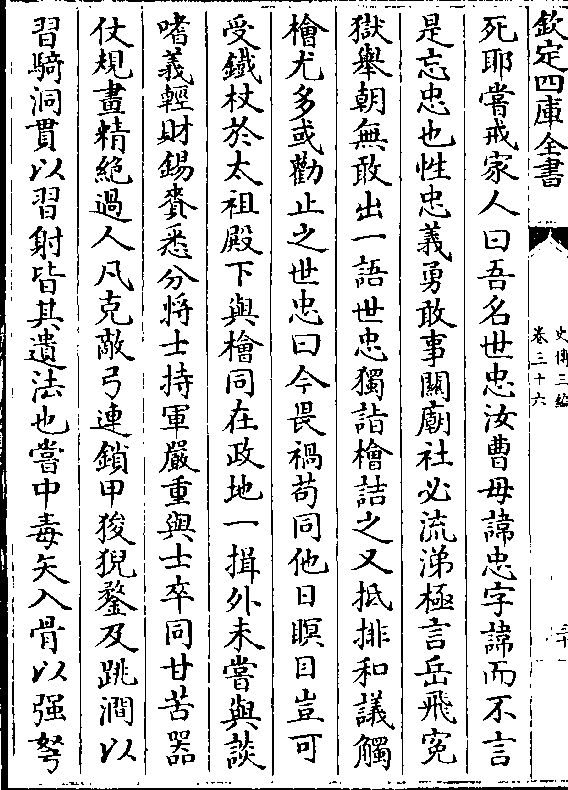 欽定四庫全書
史傳三編
卷三十六
死耶嘗戒家人曰吾名世忠汝曹毋諱忠字諱而不言
是忘忠也性忠義勇敢事關廟社必流涕極言岳飛寃
獄舉朝無敢出一語世忠獨詣檜詰之又抵排和議觸
檜尤多或勸止之世忠曰今畏禍苟同他日瞑目豈可
受鐵杖於太祖殿下與檜同在政地一揖外未嘗與談
嗜義輕財錫賚悉分將士持軍嚴重與士卒同甘苦器
仗規畫精絶過人凡克敵弓連鎖甲狻猊鍪及跳澗以
習騎洞貫以習射皆其遺法也嘗中毒矢入骨以强弩